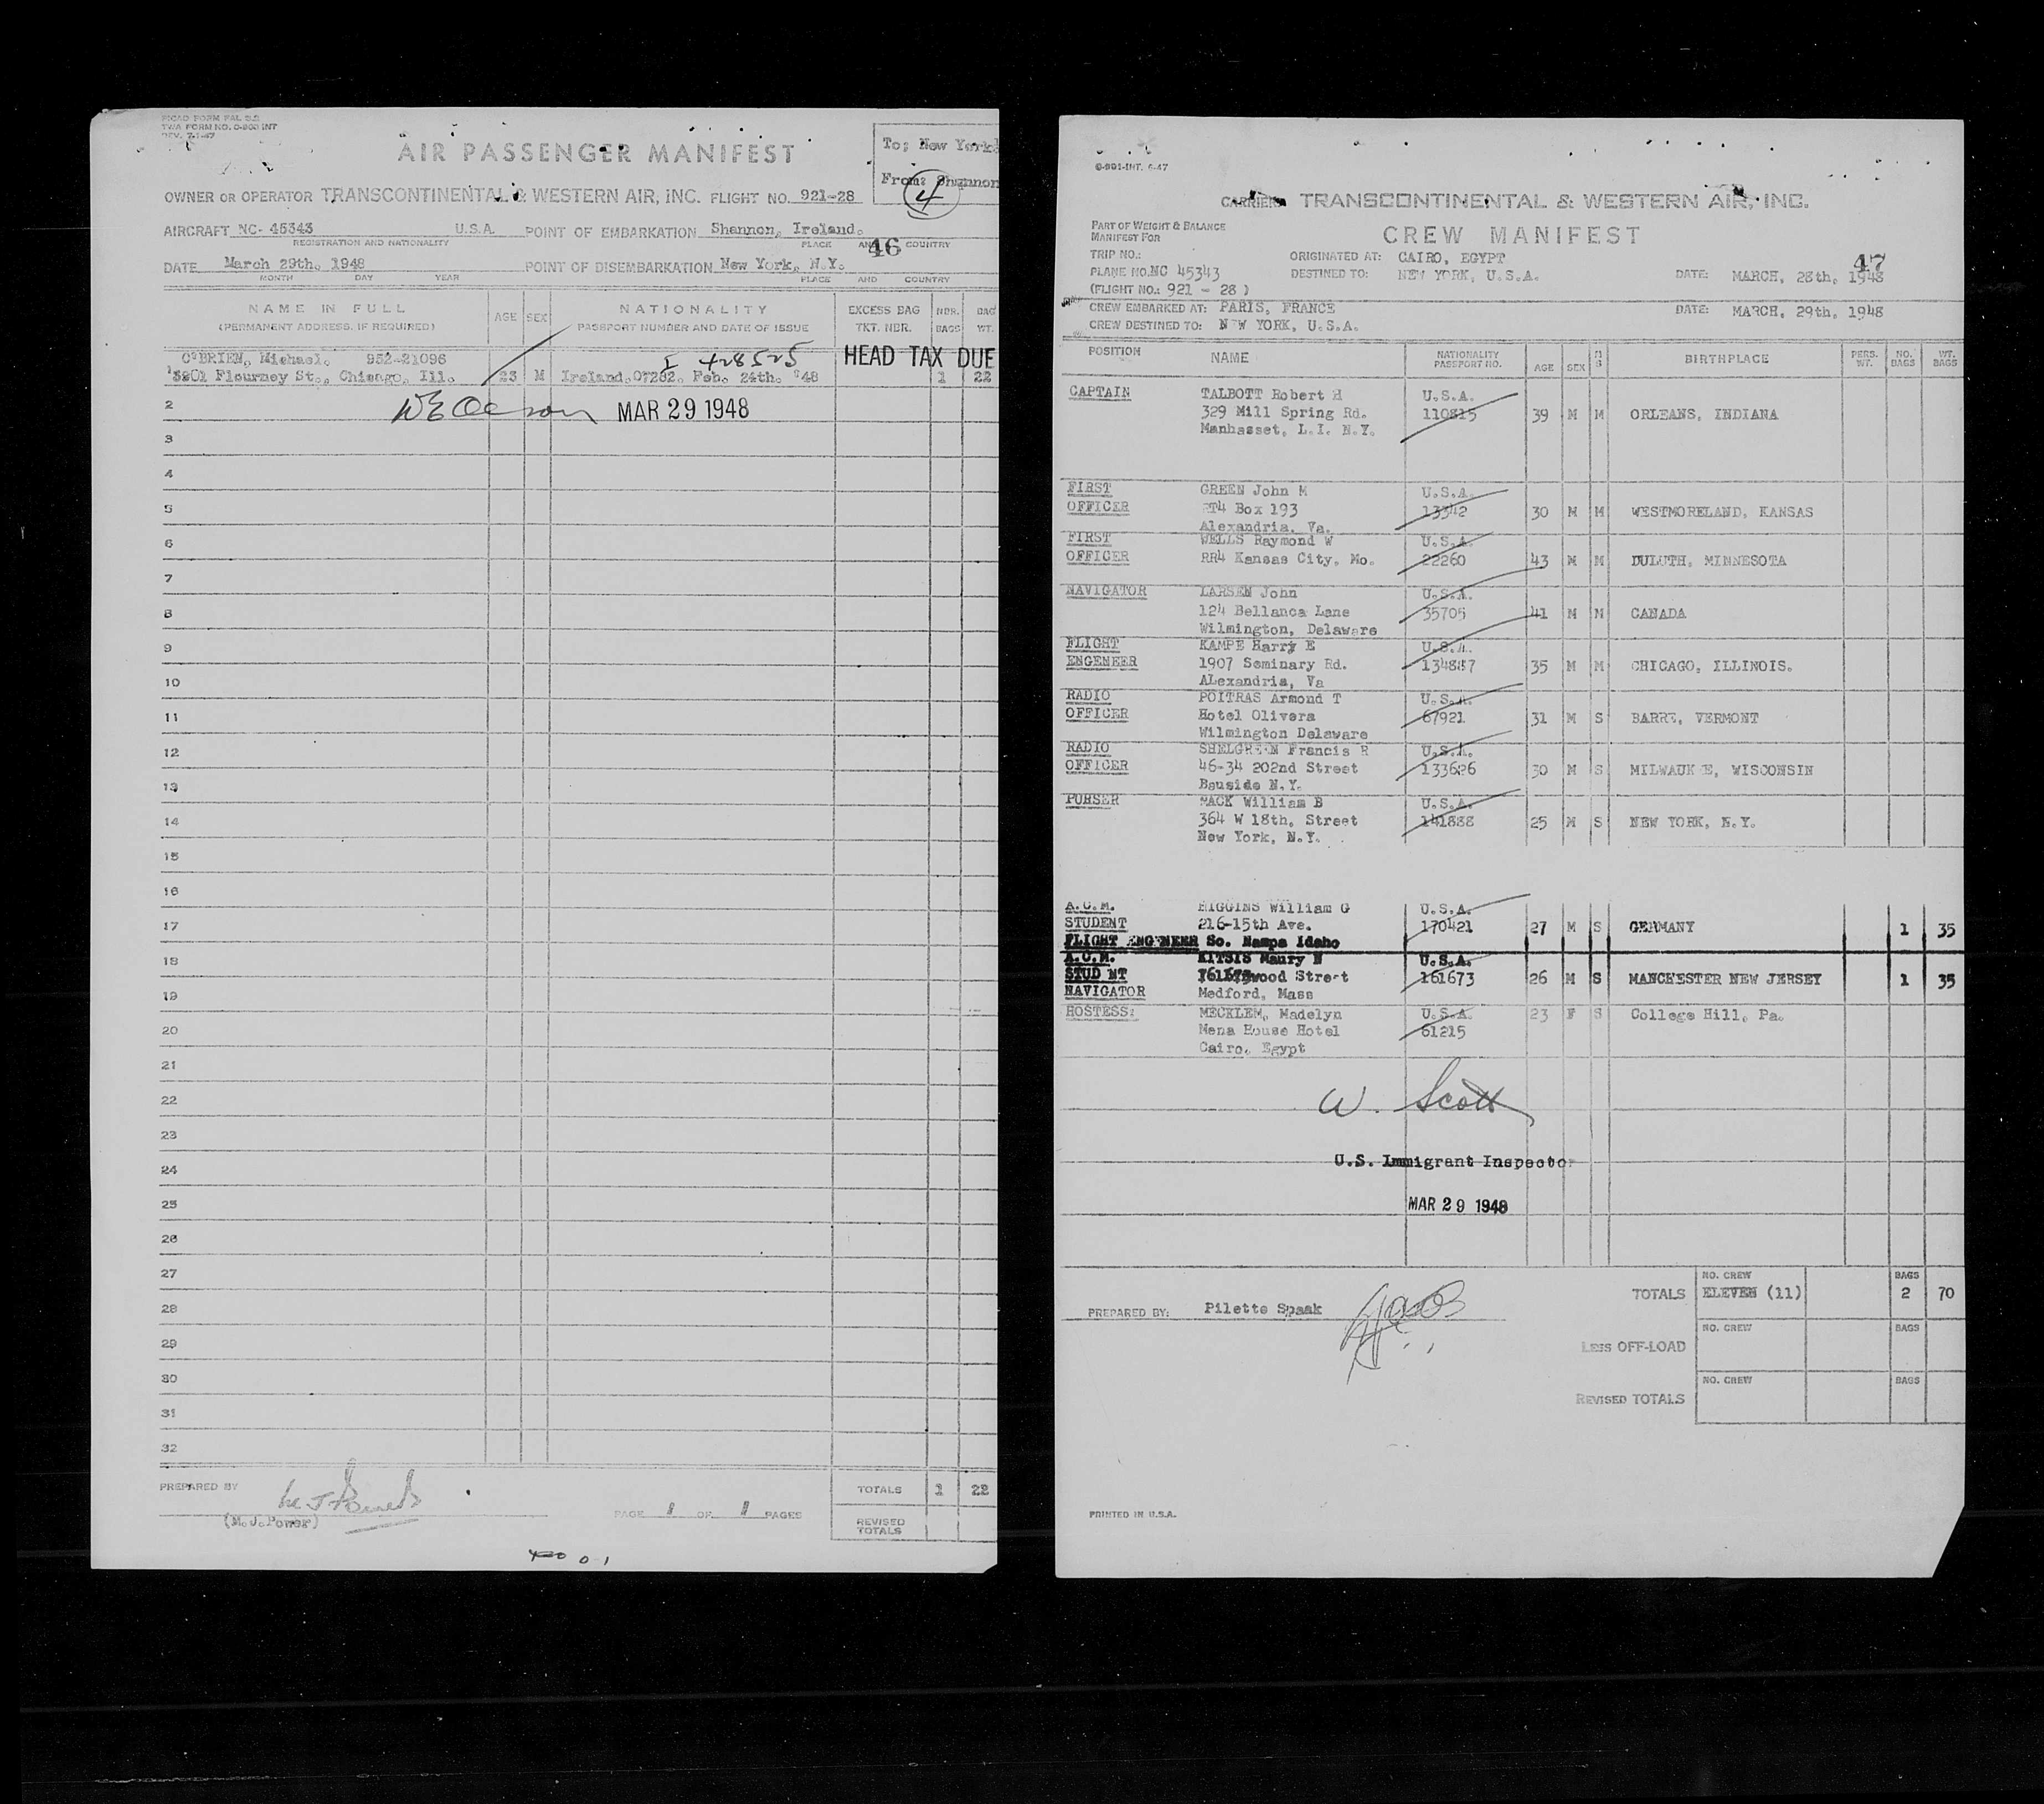 PICAO FORM FAL 2.2
TWA FORM NO. O-903 INT
REV. 7-1-47
AIR PASSENGER MANIFEST
To: New York
From: Shannon
4
OWNER OR OPERATOR TRANSCONTINENTAL & WESTERN AIR, INC. FLIGHT NO. 921-28
AIRCRAFT NC- 45343 U.S.A. POINT OF EMBARKATION Shannon, Ireland.
REGISTRATION AND NATIONALITY PLACE AND COUNTRY
46
DATE March 29th. 1948 POINT OF DISEMBARKATION New York, N.Y.
MONTH DAY YEAR PLACE AND COUNTRY
NAME IN FULL AGE SEX NATIONALITY EXCESS BAG NBR. BAG
(PERMANENT ADDRESS, IF REQUIRED) PASSPORT NUMBER AND DATE OF ISSUE TKT. NBR. BAGS WT.
O'BRIEN, Michael. 952-21096 I 428525 HEAD TAX DUE
1 3201 Flourney St., Chicago, Ill. 23 M Ireland.07282. Feb. 24th. '48 1 22
2 MAR 29 1948
3
4
5
6
7
8
9
10
11
12
13
14
15
16
17
18
19
20
21
22
23
24
25
26
27
28
29
30
31
32
PREPARED BY TOTALS 1 22
(M.J.Power) PAGE 1 OF 1 PAGES REVISED TOTALS
0 1
O-991-INT. 6-47
CARRIER TRANSCONTINENTAL & WESTERN AIR, INC.
PART OF WEIGHT & BALANCE
MANIFEST FOR
CREW MANIFEST
47
TRIP NO.: ORIGINATED AT: CAIRO, EGYPT
PLANE NO. NC 45343 DESTINED TO: NEW YORK, U.S.A. DATE: MARCH, 28th, 1948
(FLIGHT NO.: 921 - 28 )
CREW EMBARKED AT: PARIS, FRANCE DATE: MARCH, 29th, 1948
CREW DESTINED TO: NEW YORK, U.S.A.
POSITION NAME NATIONALITY PASSPORT NO. AGE SEX M S BIRTHPLACE PERS. WT. NO. BAGS WT. BAGS
CAPTAIN TALBOTT Robert H U.S.A.
329 Mill Spring Rd. 110815 39 M M ORLEANS, INDIANA
Manhasset, L.I. N.Y.
FIRST GREEN John M U.S.A.
OFFICER RT4 Box 193 13342 30 M M WESTMORELAND, KANSAS
Alexandria. Va.
FIRST WELLS Raymond W U.S.A.
OFFICER RR4 Kansas City, Mo. 22260 43 M M DULUTH, MINNESOTA
NAVIGATOR LARSEN John U.S.A.
124 Bellanca Lane 35705 41 M M CANADA
Wilmington, Delaware
FLIGHT KAMPE Harry E U.S.A.
ENGENEER 1907 Seminary Rd. 134887 35 M M CHICAGO, ILLINOIS.
ALexandria, Va
RADIO POITRAS Armond T U.S.A.
OFFICER Hotel Olivera 67921 31 M S BARRE, VERMONT
Wilmington Delaware
RADIO SHELGREEN Francis R U.S.A.
OFFICER 46-34 202nd Street 133626 30 M S MILWAUK E, WISCONSIN
Bauside N.Y.
PURSER MACK William B U.S.A.
364 W 18th. Street 141888 25 M S NEW YORK, N.Y.
New York, N.Y.
A.C.M. HIGGINS William G U.S.A.
STUDENT 216-15th Ave. 170421 27 M S GERMANY 1 35
FLIGHT ENGENEER So. Nampa Idaho
A.C.M. KITSIS Maury N U.S.A.
STUD NT Street 161673 26 M S MANCHESTER NEW JERSEY 1 35
NAVIGATOR Medford, Mass
HOSTESS: MECKLEM, Madelyn U.S.A. 23 F S College Hill, Pa.
Mena House Hotel 61215
Cairo, Egypt
W. Scott
U.S. Immigrant Inspector
MAR 29 1948
PREPARED BY: Pilette Spaak
TOTALS NO. CREW ELEVEN (11) BAGS 2 70
LESS OFF-LOAD NO. CREW BAGS
REVISED TOTALS NO. CREW BAGS
PRINTED IN U.S.A.